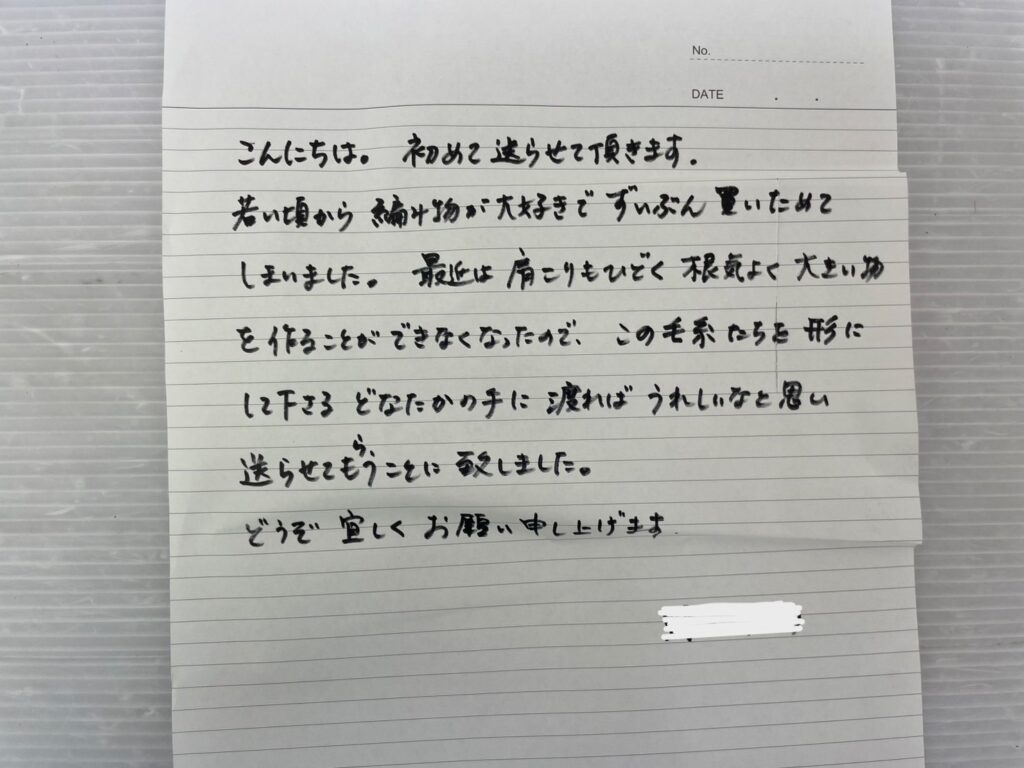 No.
DATE . .
こんにちは。 初めて送らせて頂きます.
若い頃から 編み物が大好きで ずいぶん 買いためて
しまいました。 最近は 肩こりもひどく 根気よく 大きい物
を作ることができなくなったので、 この毛糸たちを 形に
して下さる どなたかの手に 渡れば うれしいなと思い
送らせてもらうことに 致しました。
どうぞ 宜しく お願い申し上げます.